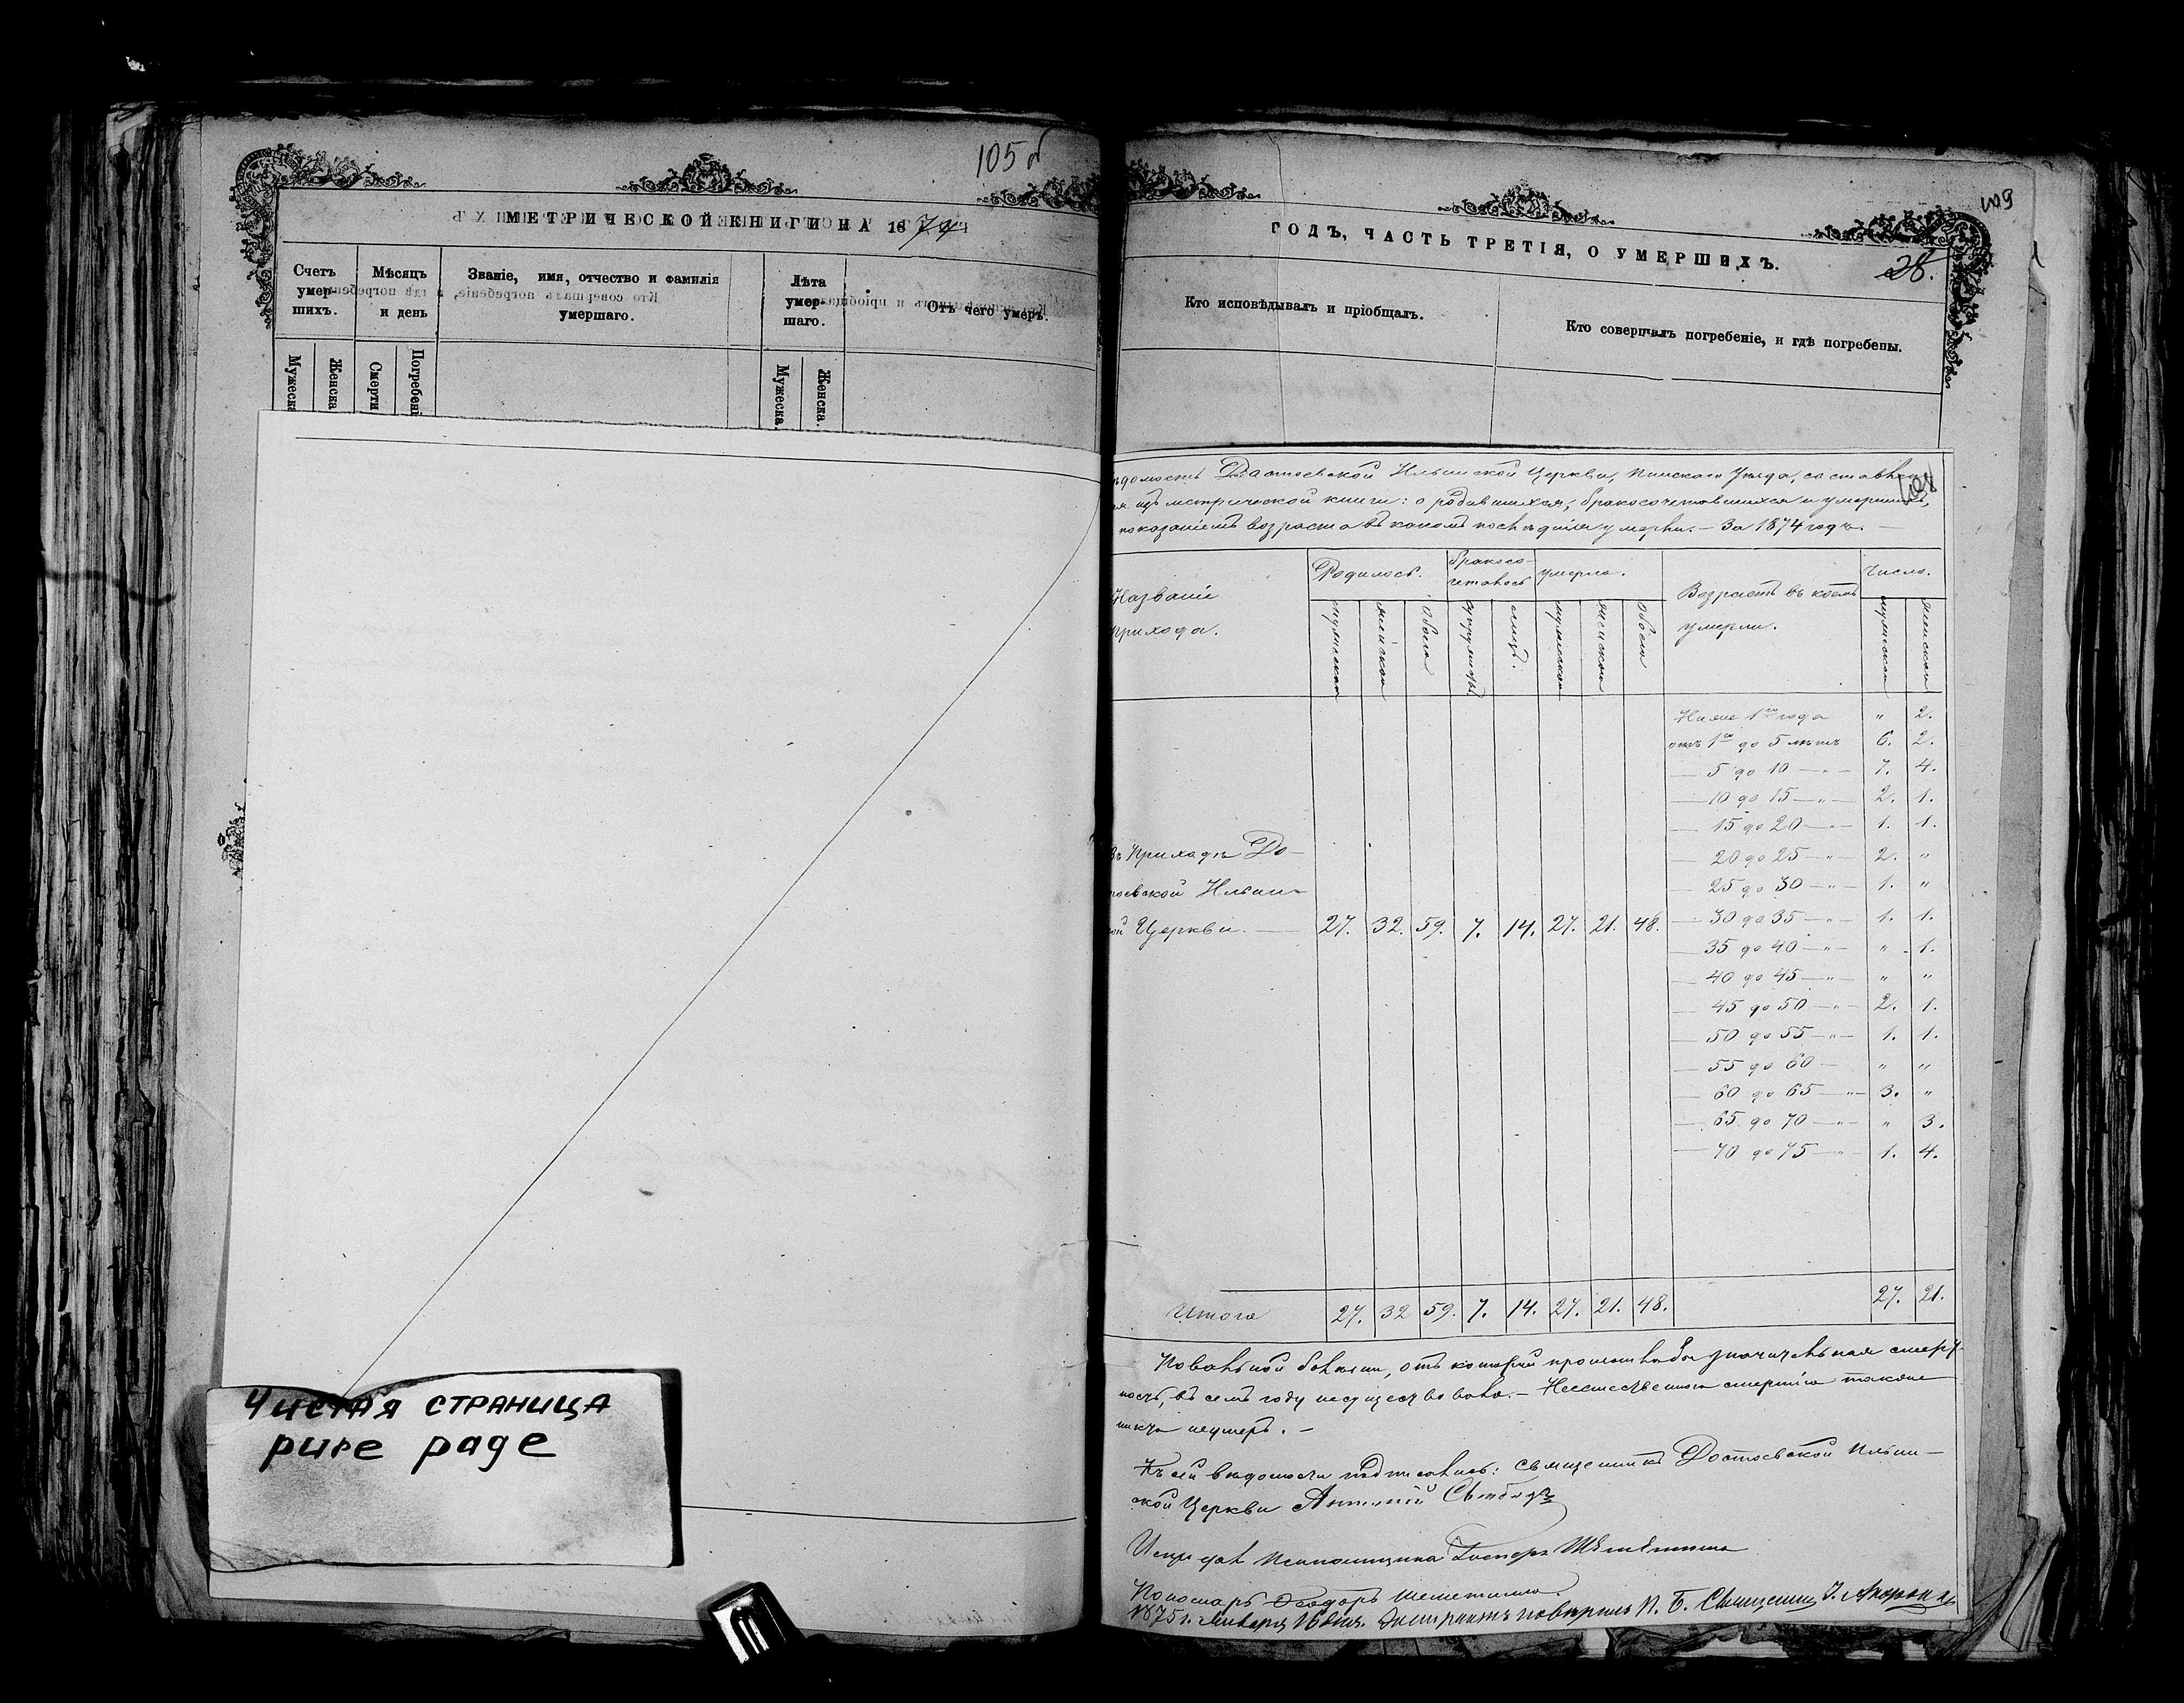 105 об
МЕТРИЧЕСКОЙ КНИГИ НА 1874
Счетъ умер- шихъ.
Мѣсяцъ и день
Званіе, имя, отчество и фамилія умершаго.
Лѣта умер- шаго.
Отъ чего умеръ.
Мужеска
Женска
Смерти
Погребені
Мужеска.
Женска.
Чистая страница
pure page
109
ГОДЪ, ЧАСТЬ ТРЕТІЯ, О УМЕРШИХЪ.
28.
Кто исповѣдывалъ и пріобщалъ.
Кто совершалъ погребеніе, и гдѣ погребены.
ѣдомость Достоевской Ильинской Церкви, Пинскаго Уѣзда, составлен
ая изъ метрической книги: о родившихся, бракосочетавшихся и умершихъ,
показаніемъ возраста въ какомъ послѣдніе умерли. — За 1874 годъ. —
Названіе прихода.
Родилось.
бракосо- четалось
умерло.
Возрастъ въ коемъ умерли.
Число.
мужескаго
женскаго
обоего
супружествъ
лицъ.
мужескаго
женскаго
обоего
мужескаго
женскаго
Ниже 1го года " 2.
отъ 1го до 5 лѣтъ 6. 2.
— 5 до 10 — " — 7. 4.
— 10 до 15 — " — 2. 1.
— 15 до 20 — " — 1. 1.
— 20 до 25 — " 2. "
— 25 до 30 — " — 1. "
— 30 до 35 — " — 1. 1.
— 35 до 40 — " — " 1.
— 40 до 45 — " — " "
— 45 до 50 — " — 2. 1.
— 50 до 55 — " — 1. 1.
— 55 до 60 — " "
— 60 до 65 — " — 3. "
— 65 до 70 — " — " 3.
— 70 до 75 — " — 1. 4.
Въ Приходѣ До-
тоевской Ильин-
ой Церкви. — 27. 32. 59. 7. 14. 27. 21. 48.
Итого 27. 32 59. 7. 14. 27. 21. 48. 27. 21.
Повальной болѣзни, отъ которой произошла бы значительная смерт-
ность, въ семъ году несуществовало. — Неестественною смертію также
никто неумеръ. —
Къ сей вѣдомости подписались: Священникъ Достоевской Ильин-
ской Церкви Антоній
Пономарь Ѳеодоръ
1875 г. Января 16 дня. Экстрактъ повѣрилъ П. Б. Священникъ І.